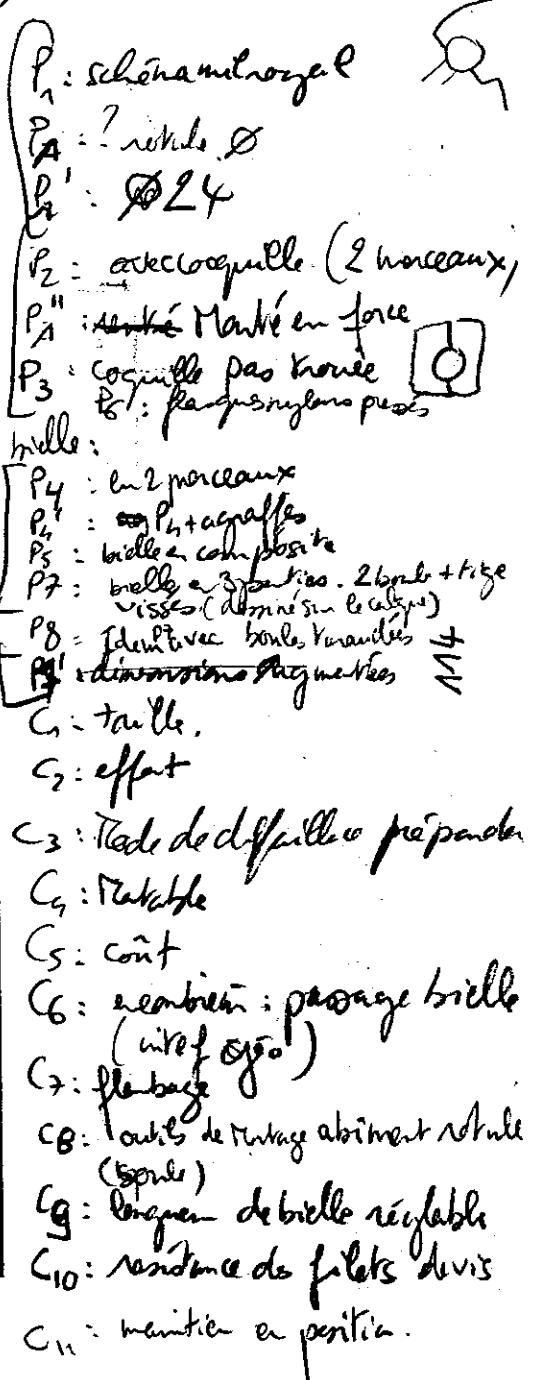 P1 : schéma mitroyal
PA : ? rotule ∅
P1' : ∅24
P2 : avec coquille (2 morceaux,
PA" : Monté en force
P3 : coquille pas trouée
P6 : flasques nylons pressés
bielle :
P4 : en 2 morceaux
P4' : P4 + agraffes
P5 : bielle en composite
P7 : bielle en 3 parties. 2 boule + tige
vissés (dessiné sur le calque)
P8 = Idem P7 avec boules taraudées
: dimensions augmentées
C1 : taille.
C2 : effort
C3 : Mode de défaillance
C4 : Matable
C5 : coût
C6 : : passage bielle
C7 : flambage
C8 : outils de montage abîment rotule
(boule)
C9 : longueur de bielle réglable
C10 : résistance des filets de vis
C11 : maintien en position.